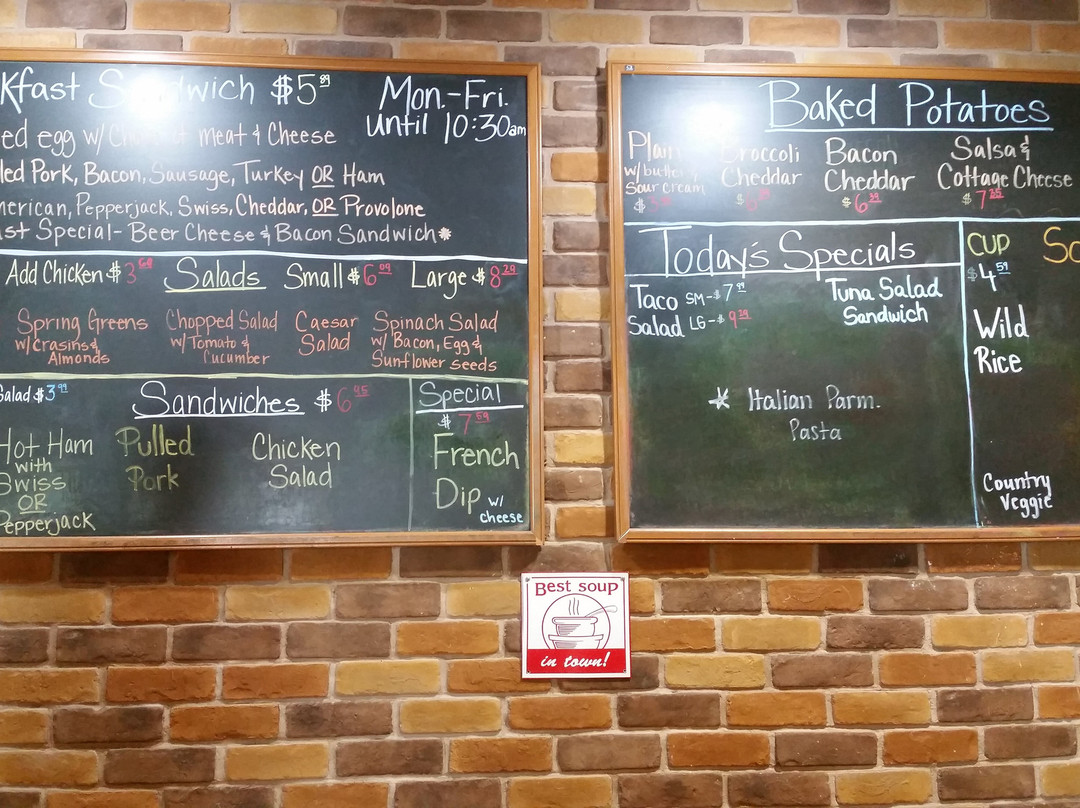 kfast Sandwich $5
Mon.-Fri.
Until 10:30am
ed egg w/ meat & Cheese
led Pork, Bacon, Sausage, Turkey OR Ham
merican, Pepperjack, Swiss, Cheddar, OR Provolone
ast Special- Beer Cheese & Bacon Sandwich*
Add Chicken $3
Salads
Small $6.09
Large $8.29
Spring Greens
w/Crasins &
Almonds
Chopped Salad
w/Tomato &
Cucumber
Caesar
Salad
Spinach Salad
w/ Bacon, Egg &
Sunflower seeds
Salad $3.99
Sandwiches $6.95
Hot Ham
with
Swiss
OR
Pepperjack
Pulled
Pork
Chicken
Salad
Special
$7.59
French
Dip w/
cheese
Baked Potatoes
Plain
w/butter &
Sour Cream
Broccoli
Cheddar
Bacon
Cheddar
$6.39
Salsa &
Cottage Cheese
$7.25
Today's Specials
Taco
Salad
SM-$7.99
LG-$9
Tuna Salad
Sandwich
* Italian Parm.
Pasta
CUP
$4.59
So
Wild
Rice
Country
Veggie
Best soup
in town!